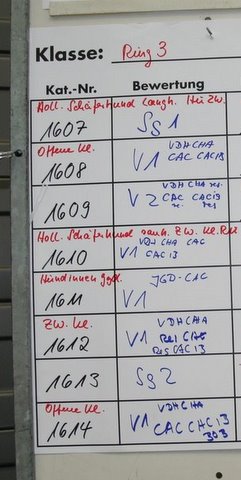 Klasse: Ring 3
Kat.-Nr. Bewertung
Holl. Schäferhund langh. Hü Zw.
1607 Sg 1
Offene Kl.
1608 V1 VDHCHA
CAC CACIB
1609 V2 VDHCHA res.
CAC CACIB
re. res
Holl. Schäferhund rauh. Zw. Kl. Rü
1610 V1 VDH CHA CAC
CACIB
Hündinnen Jgdl.
1611 V1 JGD-CAC
Zw. Kl.
1612 V1 VDHCHA
Res CAC
Res CACIB
1613 Sg 2
Offene Kl.
1614 V1 VDHCHA
CAC CACIB